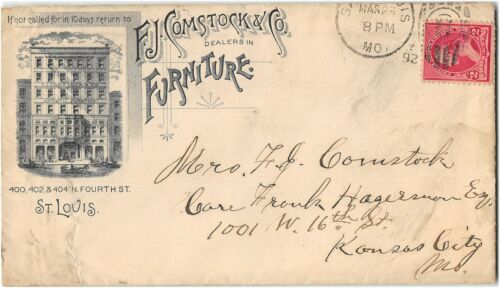 If not called for in 10 days return to
F.J. COMSTOCK & CO.
DEALERS IN
FURNITURE.
400, 402, & 404 N. FOURTH ST.
ST. LOUIS.
MAR 25
8 PM
MO.
92
Mrs. F. J. Comstock
Care Frank Hagerman Esq.
1001 W. 16th St.
Kansas City
Mo.